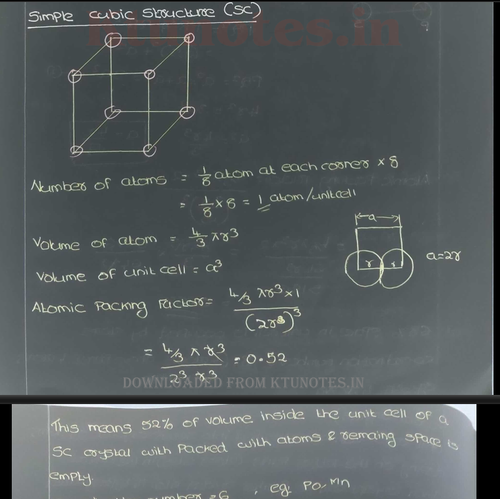 Simple cubic Structure (SC)
ktunotes.in
Number of atoms = 1/8 atom at each corner × 8
= 1/8 × 8 = 1 atom/unitcell
a
Volume of atom = 4/3 πr³
r r
a=2r
Volume of unit cell = a³
Atomic Packing Factor = 4/3 πr³ × 1 / (2r)³
= 4/3 π r³ / 2³ r³ = 0.52
DOWNLOADED FROM KTUNOTES.IN
This means 52% of volume inside the unit cell of a
SC crystal with Packed with atoms & remaing space is
empty.
number = 6, eg: Po, Mn